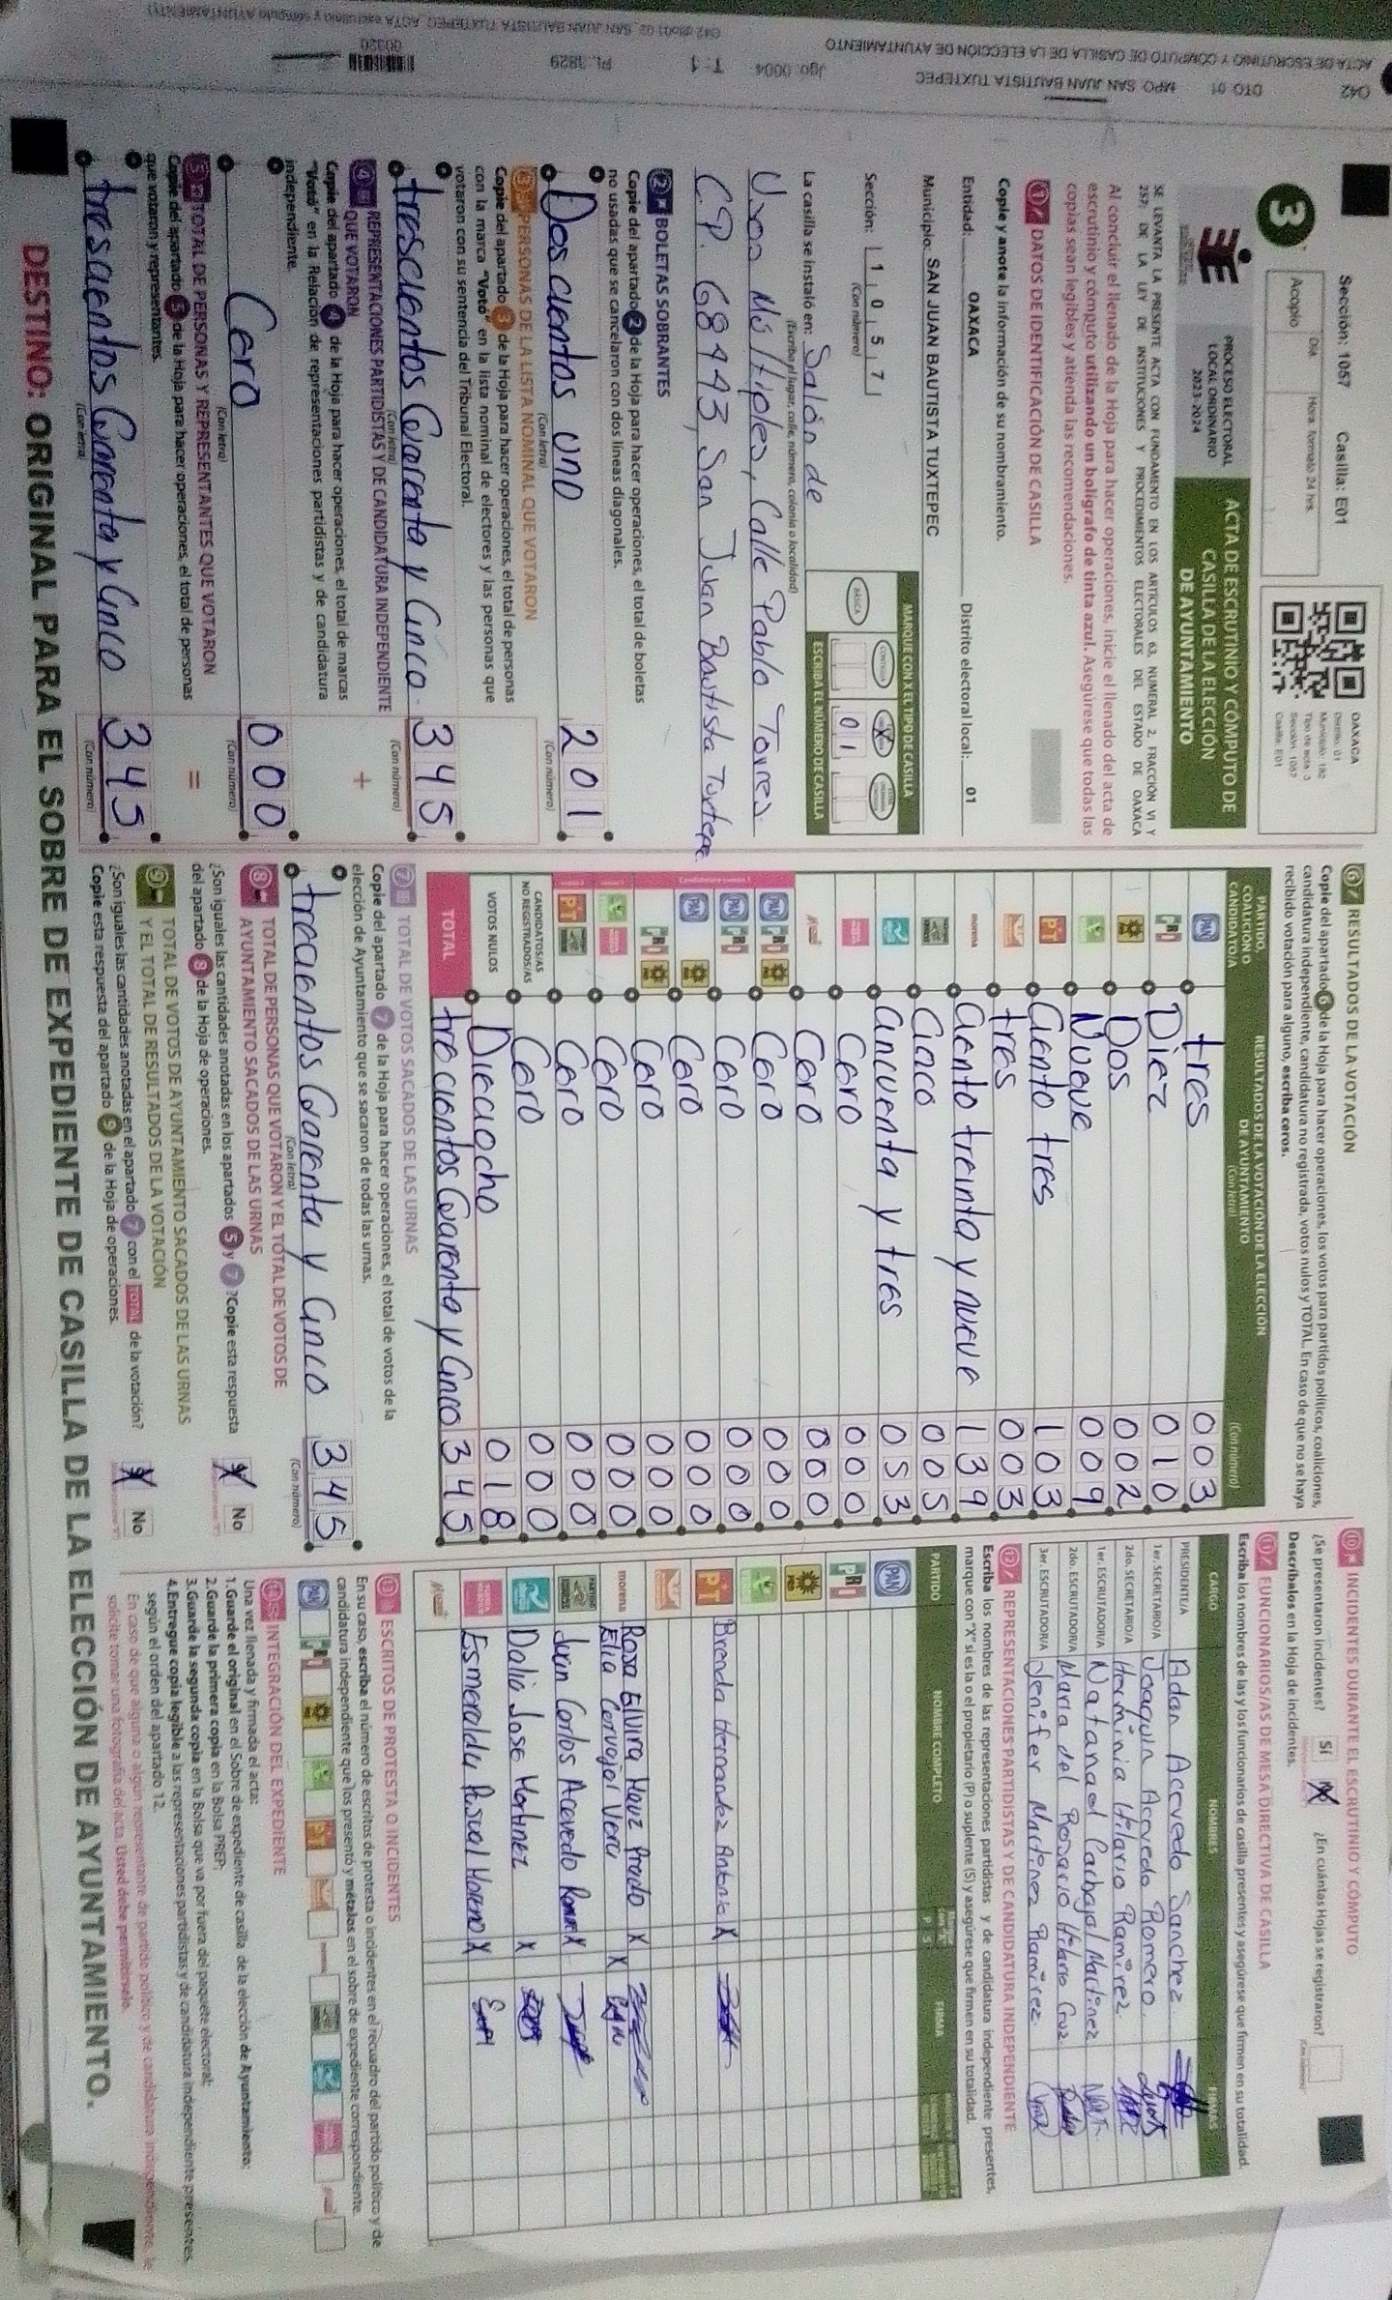 ACTA DE ESCRUTINIO Y CÓMPUTO DE CASILLA DE LA ELECCIÓN DE AYUNTAMIENTO
042 DTO 01 MPO. SAN JUAN BAUTISTA TUXTEPEC
Sección: 1057 Casilla: E01
3
Acopio
Día Hora: formato 24 hrs.
OAXACA
Distrito: 01
Sección: 1057
Casilla: E01
PROCESO ELECTORAL
LOCAL ORDINARIO
2023-2024
ACTA DE ESCRUTINIO Y CÓMPUTO DE
CASILLA DE LA ELECCIÓN
DE AYUNTAMIENTO
SE LEVANTA LA PRESENTE ACTA CON FUNDAMENTO EN LOS ARTÍCULOS 63, NUMERAL 2, FRACCIÓN VI Y
257, DE LA LEY DE INSTITUCIONES Y PROCEDIMIENTOS ELECTORALES DEL ESTADO DE OAXACA
Al concluir el llenado de la Hoja para hacer operaciones, inicie el llenado del acta de
escrutinio y cómputo utilizando un bolígrafo de tinta azul. Asegúrese que todas las
copias sean legibles y atienda las recomendaciones.
1 DATOS DE IDENTIFICACIÓN DE CASILLA
Copie y anote la información de su nombramiento.
Entidad: OAXACA Distrito electoral local: 01
Municipio: SAN JUAN BAUTISTA TUXTEPEC
Sección: 1 0 5 7
(Con número)
MARQUE CON X EL TIPO DE CASILLA
BÁSICA
X
0 1
ESCRIBA EL NÚMERO DE CASILLA
La casilla se instaló en: Salón de
(Escriba el lugar, calle, número, colonia o localidad)
Usos Múltiples, Calle Pablo Torres
C.P. 68443, San Juan Bautista Tuxtepec
2 BOLETAS SOBRANTES
Copie del apartado 2 de la Hoja para hacer operaciones, el total de boletas
no usadas que se cancelaron con dos líneas diagonales.
Doscientos uno 201
(Con letra) (Con número)
3 PERSONAS DE LA LISTA NOMINAL QUE VOTARON
Copie del apartado 3 de la Hoja para hacer operaciones, el total de personas
con la marca "Votó" en la lista nominal de electores y las personas que
votaron con su sentencia del Tribunal Electoral.
trescientos Cuarenta y Cinco 345
(Con letra) (Con número)
4 REPRESENTACIONES PARTIDISTAS Y DE CANDIDATURA INDEPENDIENTE
QUE VOTARON
Copie del apartado 4 de la Hoja para hacer operaciones, el total de marcas
"Votó" en la Relación de representaciones partidistas y de candidatura
independiente.
+
Cero 000
(Con letra) (Con número)
5 TOTAL DE PERSONAS Y REPRESENTANTES QUE VOTARON
Copie del apartado 5 de la Hoja para hacer operaciones, el total de personas
que votaron y representantes.
=
trescientos Cuarenta y Cinco 345
(Con letra) (Con número)
6 RESULTADOS DE LA VOTACIÓN
Copie del apartado 6 de la Hoja para hacer operaciones, los votos para partidos políticos, coaliciones,
candidatura independiente, candidatura no registrada, votos nulos y TOTAL. En caso de que no se haya
recibido votación para alguno, escriba ceros.
PARTIDO, COALICIÓN O CANDIDATO/A
RESULTADOS DE LA VOTACIÓN DE LA ELECCIÓN DE AYUNTAMIENTO
(Con letra) (Con número)
PAN tres 003
PRI Diez 010
Dos 002
Nueve 009
PT Ciento tres 103
tres 003
morena Ciento treinta y nueve 139
Cinco 005
Cincuenta y tres 053
Cero 000
Cero 000
PAN PRI Cero 000
PAN PRI Cero 000
PAN Cero 000
PRI Cero 000
Cero 000
PT Cero 000
CANDIDATOS/AS
NO REGISTRADOS/AS Cero 000
VOTOS NULOS Dieciocho 018
TOTAL trecientos Cuarenta y Cinco 345
7 TOTAL DE VOTOS SACADOS DE LAS URNAS
Copie del apartado 7 de la Hoja para hacer operaciones, el total de votos de la
elección de Ayuntamiento que se sacaron de todas las urnas.
trecientos Cuarenta y Cinco 345
(Con letra) (Con número)
8 TOTAL DE PERSONAS QUE VOTARON Y EL TOTAL DE VOTOS DE
AYUNTAMIENTO SACADOS DE LAS URNAS
¿Son iguales las cantidades anotadas en los apartados 5 y 7? Copie esta respuesta
del apartado 8 de la Hoja de operaciones.
X No
9 TOTAL DE VOTOS DE AYUNTAMIENTO SACADOS DE LAS URNAS
Y EL TOTAL DE RESULTADOS DE LA VOTACIÓN
¿Son iguales las cantidades anotadas en el apartado 7 con el TOTAL de la votación?
Copie esta respuesta del apartado 9 de la Hoja de operaciones.
X No
10 INCIDENTES DURANTE EL ESCRUTINIO Y CÓMPUTO
¿Se presentaron incidentes? Sí X ¿En cuántas Hojas se registraron?
Descríbalos en la Hoja de incidentes.
11 FUNCIONARIOS/AS DE MESA DIRECTIVA DE CASILLA
Escriba los nombres de las y los funcionarios de casilla presentes y asegúrese que firmen en su totalidad.
CARGO NOMBRES FIRMAS
PRESIDENTE/A Adan Acevedo Sanchez
1er. SECRETARIO/A Joaquin Acevedo Romero
2do. SECRETARIO/A Herminia Hilario Ramirez
1er. ESCRUTADOR/A Natanael Carbajal Martinez
2do. ESCRUTADOR/A Maria del Rosario Hilario Cruz
3er. ESCRUTADOR/A Jenifer Martinez Ramirez
12 REPRESENTACIONES PARTIDISTAS Y DE CANDIDATURA INDEPENDIENTE
Escriba los nombres de las representaciones partidistas y de candidatura independiente presentes,
marque con "X" si es la o el propietario (P) o suplente (S) y asegúrese que firmen en su totalidad.
PARTIDO NOMBRE COMPLETO P S FIRMA
PAN
PRI
PT Brenda Hernandez Antonio X
morena Rosa Elvira Prado X
Elia Carvajal Vera X
Juan Carlos Acevedo X
Dalia Jose Martinez X
Esmeralda Pascual Moreno X
13 ESCRITOS DE PROTESTA O INCIDENTES
En su caso, escriba el número de escritos de protesta o incidentes en el recuadro del partido político y de
candidatura independiente que los presentó y métalos en el sobre de expediente correspondiente.
14 INTEGRACIÓN DEL EXPEDIENTE
Una vez llenada y firmada el acta:
1.Guarde el original en el Sobre de expediente de casilla de la elección de Ayuntamiento;
2.Guarde la primera copia en la Bolsa PREP;
3.Guarde la segunda copia en la Bolsa que va por fuera del paquete electoral;
4.Entregue copia legible a las representaciones partidistas y de candidatura independiente presentes,
según el orden del apartado 12.
En caso de que alguna o algún representante de partido político y de candidatura independiente, le
solicite tomar una fotografía del acta. Usted debe permitírselo.
DESTINO: ORIGINAL PARA EL SOBRE DE EXPEDIENTE DE CASILLA DE LA ELECCIÓN DE AYUNTAMIENTO.